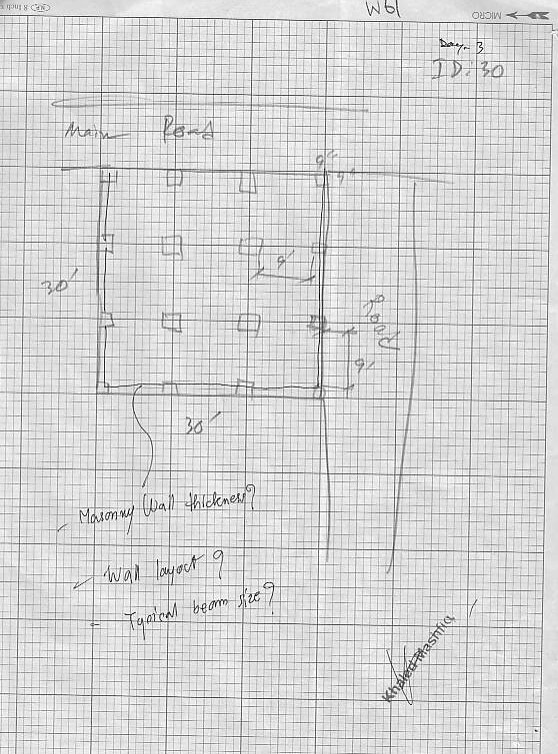 W61
MICRO
Day-3
ID:30
Main Road
9" 9"
9'
30'
Road
9'
30'
Masonry Wall thickness?
Wall layout?
- Typical beam size?
Khaled Mashfiq